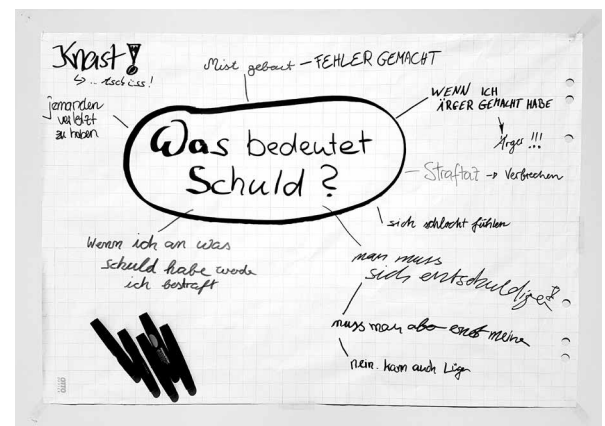 Knast!
↳ .. tschüss!
Mist gebaut – FEHLER GEMACHT
jemanden
verletzt
zu haben
WENN ICH
ÄRGER GEMACHT HABE
Ärger !!!
Was bedeutet
Schuld ?
Straftat → Verbrechen
sich schlecht fühlen
Wenn ich an was
schuld habe werde
ich bestraft
man muss
sich entschuldigen
muss man aber ernst meine
nein. kann auch Lügen